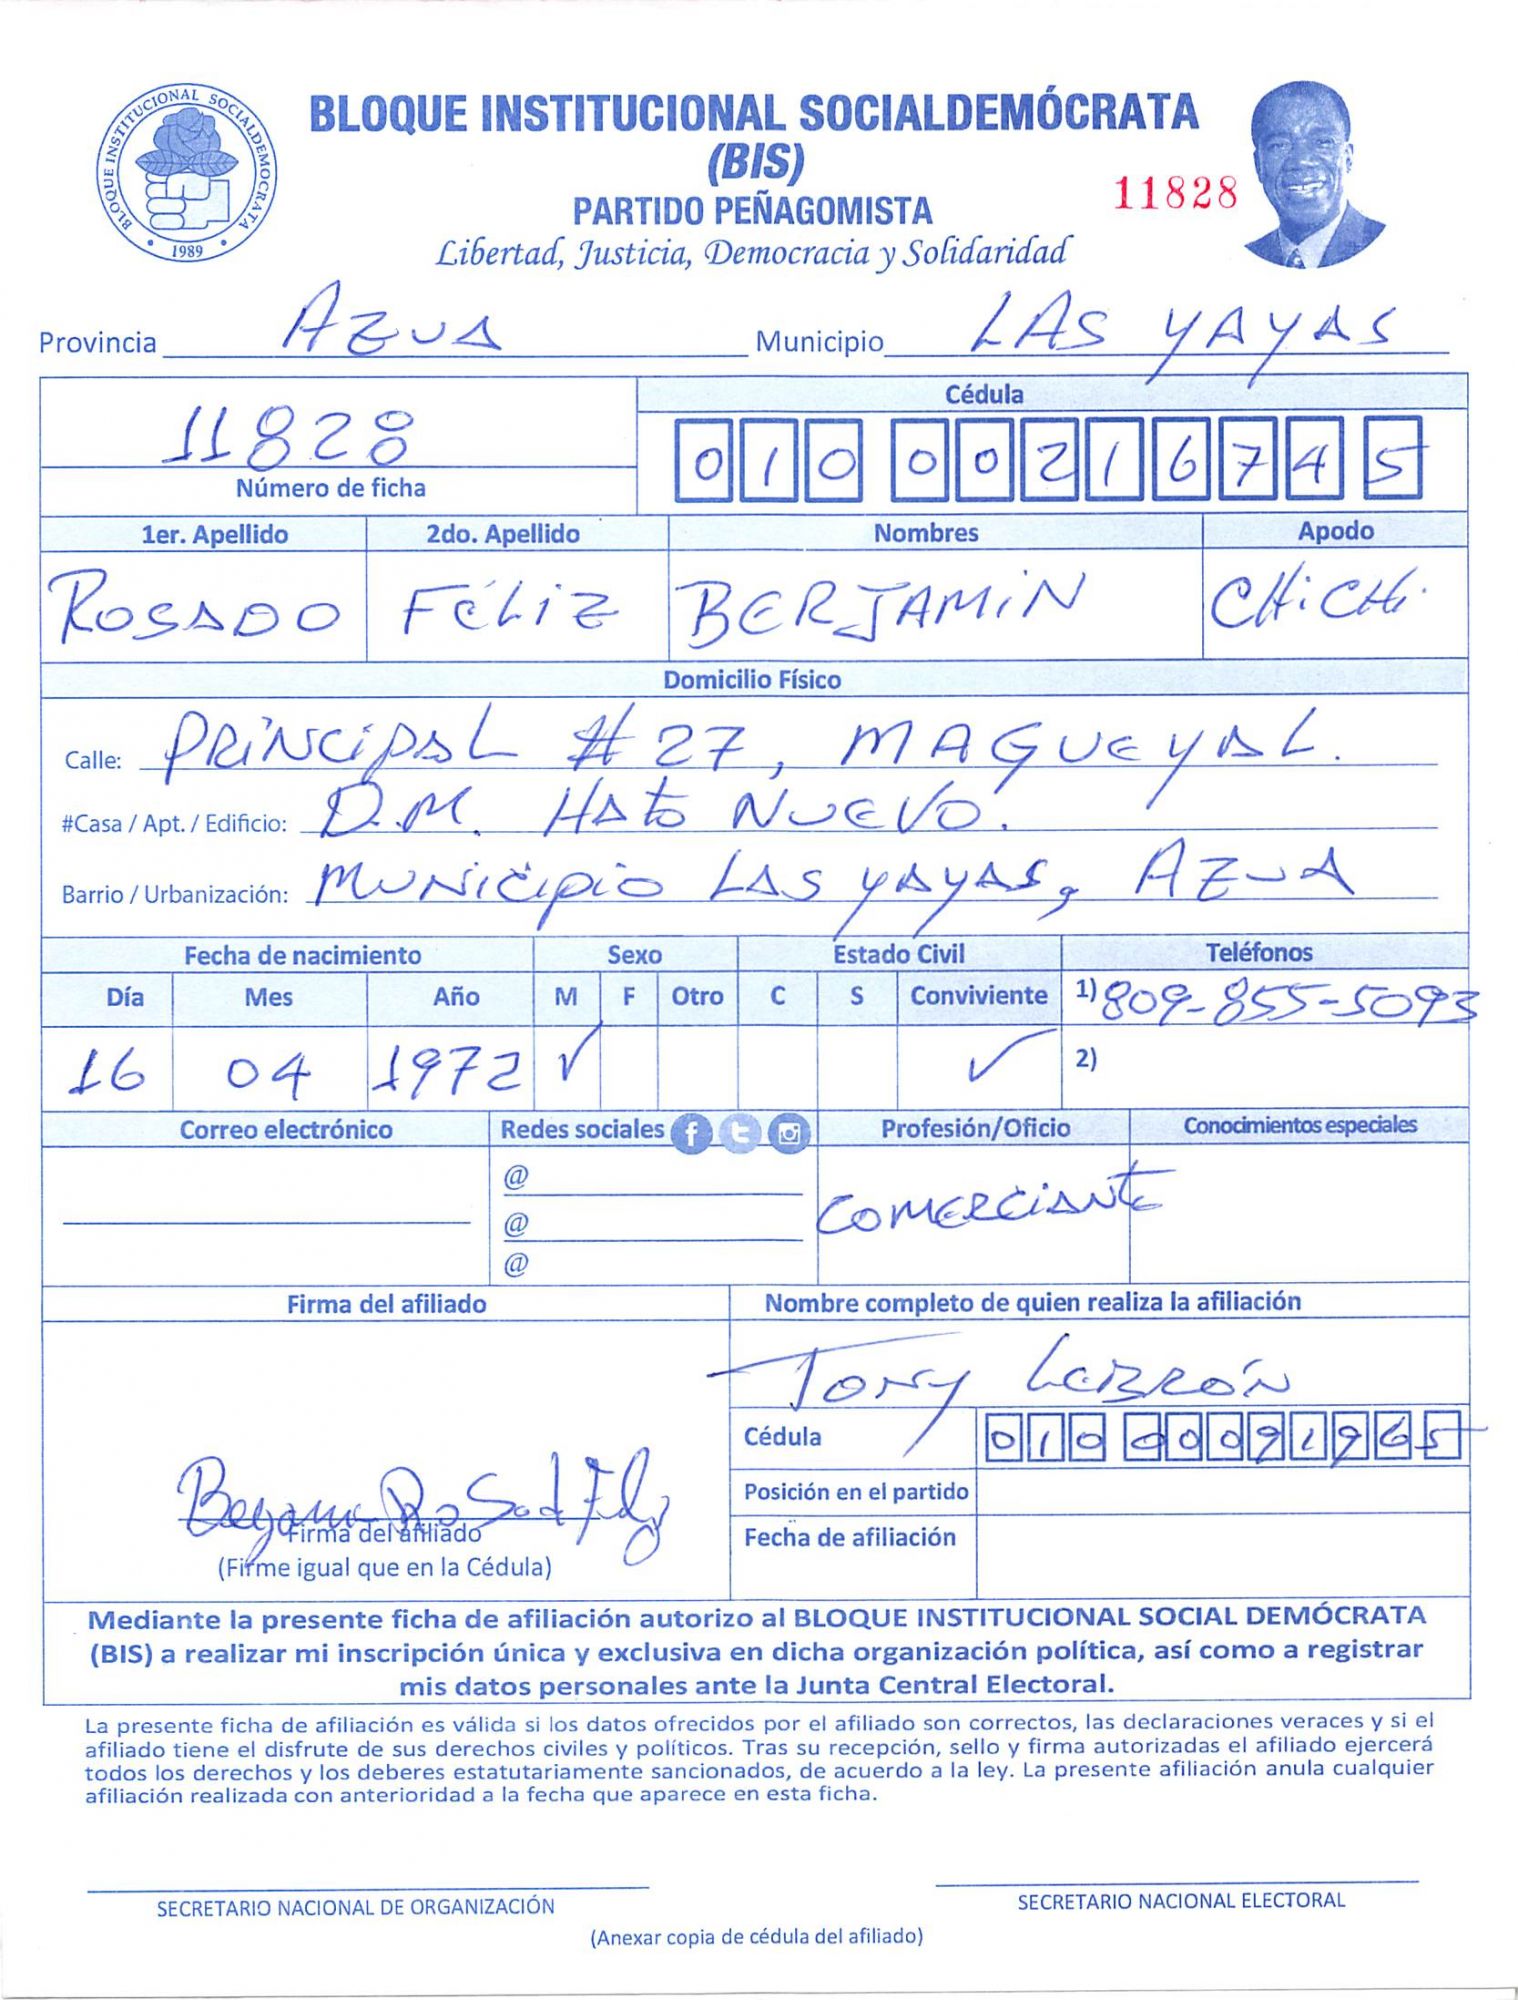 BLOQUE INSTITUCIONAL SOCIALDEMÓCRATA
BLOQUE INSTITUCIONAL SOCIALDEMÓCRATA
(BIS)
1989
PARTIDO PEÑAGOMISTA
11828
Libertad, Justicia, Democracia y Solidaridad
Provincia AZUA Municipio LAS YAYAS
Cédula
11828 0 1 0 0 0 2 1 6 7 4 5
Número de ficha
1er. Apellido 2do. Apellido Nombres Apodo
ROSADO FÉLIZ BERJAMIN CHICHI
Domicilio Físico
Calle: PRINCIPAL #27, MAGUEYAL.
#Casa / Apt. / Edificio: D.M. HATO NUEVO.
Barrio / Urbanización: MUNICIPIO LAS YAYAS, AZUA
Fecha de nacimiento Sexo Estado Civil Teléfonos
Día Mes Año M F Otro C S Conviviente 1) 809-855-5093
16 04 1972 ✓ ✓ 2)
Correo electrónico Redes sociales Profesión/Oficio Conocimientos especiales
@
COMERCIANTE
@
@
Firma del afiliado Nombre completo de quien realiza la afiliación
TONY LEBRÓN
Cédula 0 1 0 0 0 0 9 1 9 6 5
Posición en el partido
Firma del afiliado
Fecha de afiliación
(Firme igual que en la Cédula)
Mediante la presente ficha de afiliación autorizo al BLOQUE INSTITUCIONAL SOCIAL DEMÓCRATA
(BIS) a realizar mi inscripción única y exclusiva en dicha organización política, así como a registrar
mis datos personales ante la Junta Central Electoral.
La presente ficha de afiliación es válida si los datos ofrecidos por el afiliado son correctos, las declaraciones veraces y si el
afiliado tiene el disfrute de sus derechos civiles y políticos. Tras su recepción, sello y firma autorizadas el afiliado ejercerá
todos los derechos y los deberes estatutariamente sancionados, de acuerdo a la ley. La presente afiliación anula cualquier
afiliación realizada con anterioridad a la fecha que aparece en esta ficha.
SECRETARIO NACIONAL DE ORGANIZACIÓN SECRETARIO NACIONAL ELECTORAL
(Anexar copia de cédula del afiliado)